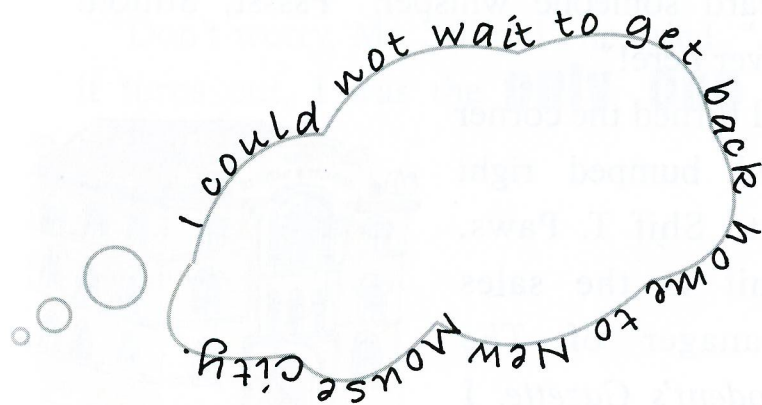 I could not wait to get back home to New Mouse City.